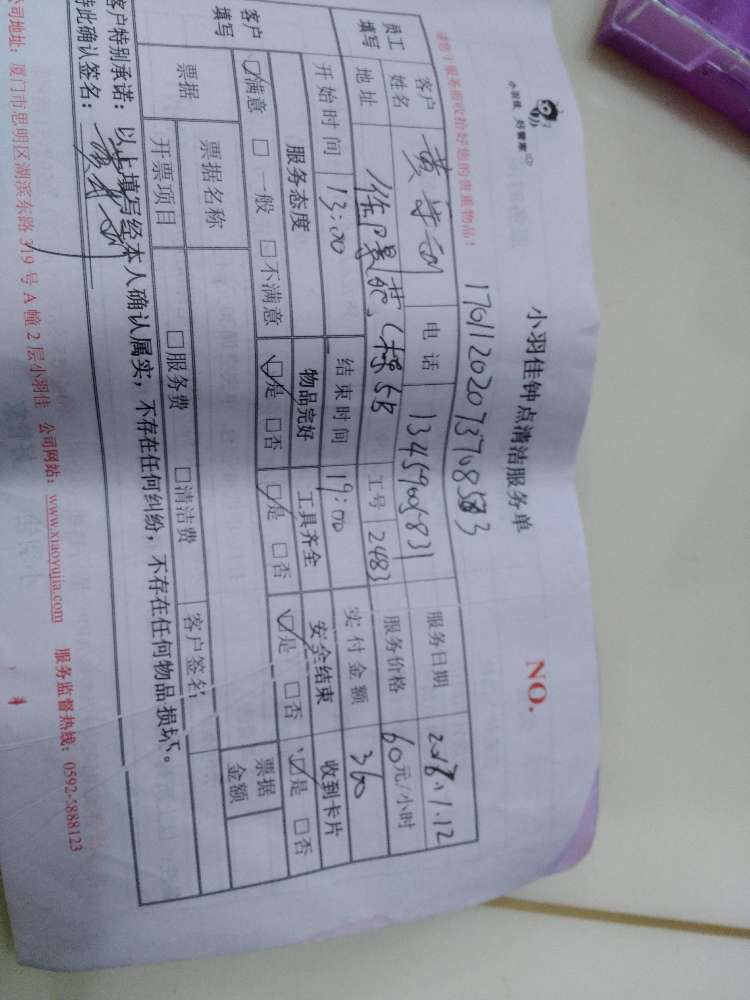 小羽佳 好管家
小羽佳钟点清洁服务单
NO.
请您于服务前收拾好您的贵重物品!
员工填写
客户姓名 黄 电话 服务日期 2018.1.12
地址 工号 2483 服务价格 60元/小时
开始时间 13:00 结束时间 19:00 实付金额 360
客户填写
服务态度 物品完好 工具齐全 安全结束 收到卡片
☑满意 □一般 □不满意 ☑是 □否 ☑是 □否 ☑是 □否 ☑是 □否
票据 票据名称 票据金额
开票项目 □服务费 □清洁费 客户签名
客户特别承诺:以上填写经本人确认属实,不存在任何纠纷,不存在任何物品损坏。
特此确认签名:
公司地址:厦门市思明区湖滨东路319号A幢2层小羽佳 公司网站:www.xiaoyujia.com 服务监督热线:0592-5888123